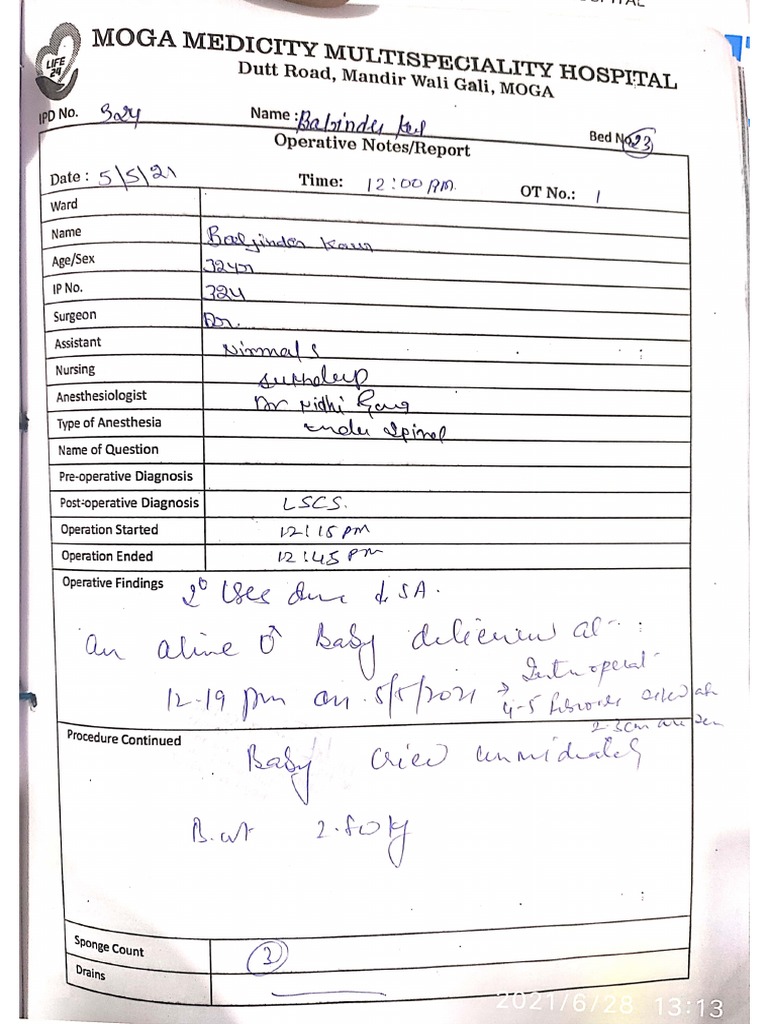 LIFE
24
MOGA MEDICITY MULTISPECIALITY HOSPITAL
Dutt Road, Mandir Wali Gali, MOGA
IPD No. 324 Name : Baljinder Bed No. 23
Operative Notes/Report
Date : 5/5/21 Time: 12:00 PM. OT No.: 1
Ward
Name Baljinder Kaur
Age/Sex 32yr
IP No. 324
Surgeon Dr.
Assistant Nirmal S
Nursing Sukhdeep
Anesthesiologist Dr Nidhi Garg
Type of Anesthesia under spinal
Name of Question
Pre-operative Diagnosis
Post-operative Diagnosis LSCS.
Operation Started 12:15 PM
Operation Ended 12:45 PM
Operative Findings 2° LSCS done SA.
An alive ♂ Baby delivered at
12-19 pm on 5/5/2021 → Intraoperat
4-5 fibroids
2-3cm are
Procedure Continued
Baby cried immidiately
B.wt 2.80 kg
Sponge Count 3
Drains
2021/6/28 13:13